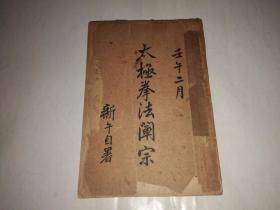 壬午二月
太極拳法闡宗
新午自署